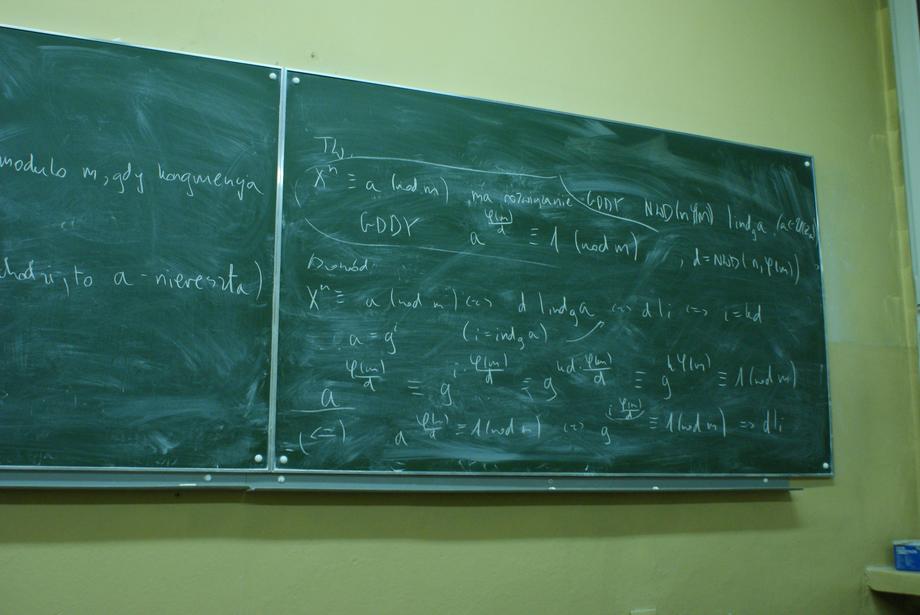 modulo m, gdy kongruencja
to a - niereszta)
Tw.
X^n ≡ a (mod m) ma rozwiązanie GDDY NWD(n, φ(m)) | ind_g a
GDDY a^{φ(m)/d} ≡ 1 (mod m) , d = NWD(n, φ(m))
Dowód:
X^n ≡ a (mod m) <=> d | ind_g a <=> d | i <=> i = kd
a = g^i (i = ind_g a)
a^{φ(m)/d} ≡ g^{i · φ(m)/d} ≡ g^{kd · φ(m)/d} ≡ g^{kφ(m)} ≡ 1 (mod m)
(<=) a^{φ(m)/d} ≡ 1 (mod m) <=> g^{i φ(m)/d} ≡ 1 (mod m) => d | i